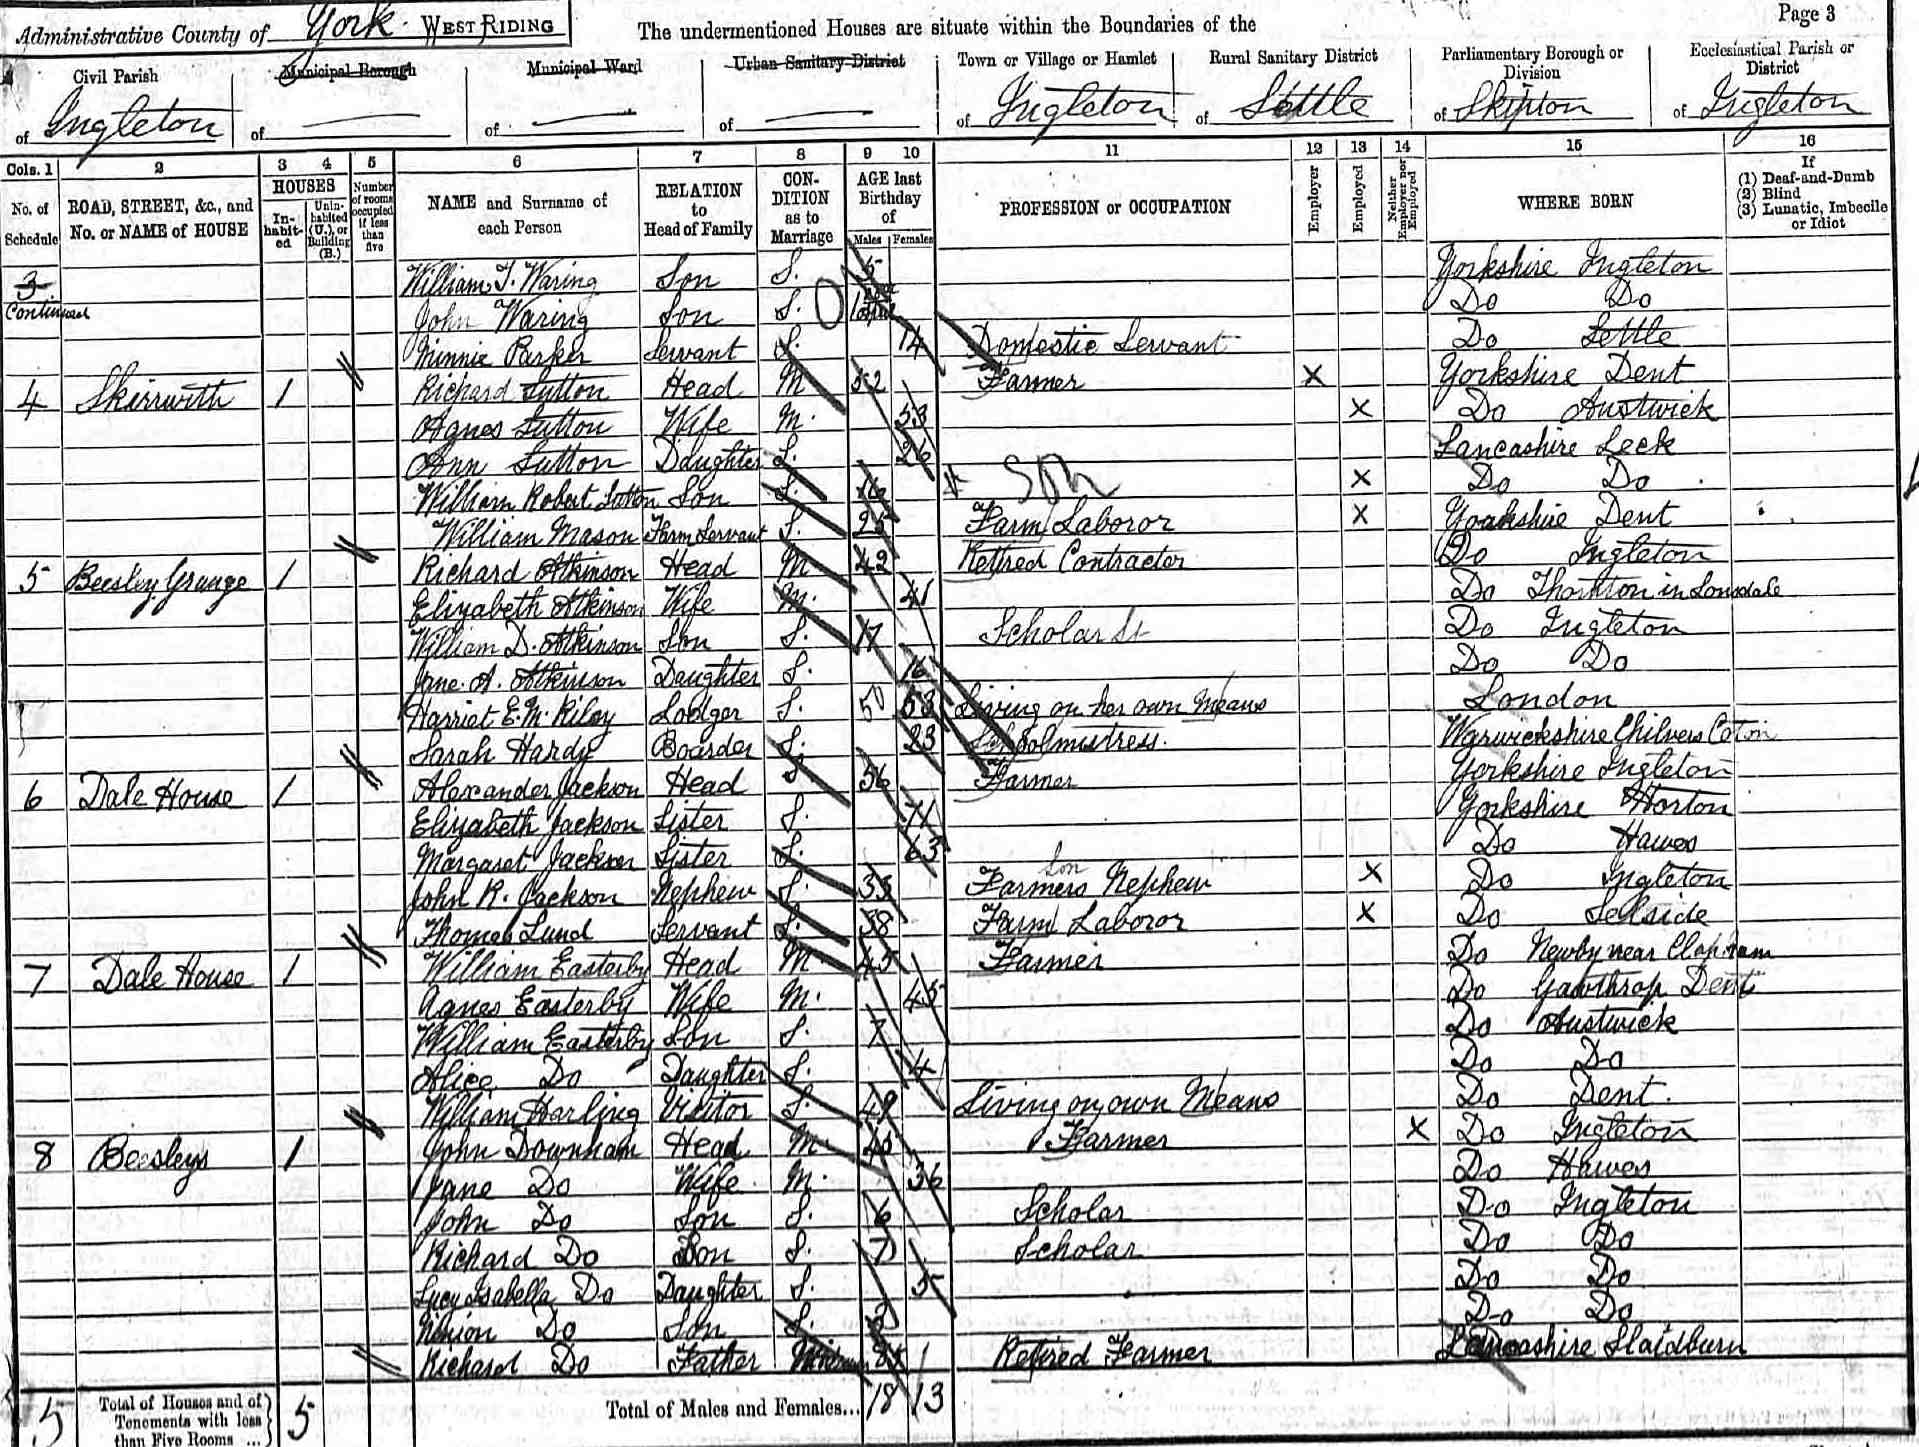 Administrative County of York. WEST RIDING The undermentioned Houses are situate within the Boundaries of the Page 3
Civil Parish of Ingleton
Municipal Borough of
Municipal Ward of
Urban Sanitary District of
Town or Village or Hamlet of Ingleton
Rural Sanitary District of Settle
Parliamentary Borough or Division of Skipton
Ecclesiastical Parish or District of Ingleton
Cols. 1 2 3 4 5 6 7 8 9 10 11 12 13 14 15 16
No. of Schedule
ROAD, STREET, &c., and No. or NAME of HOUSE
HOUSES
In-habit-ed
Unin-habited (U.), or Building (B.)
Number of rooms occupied if less than five
NAME and Surname of each Person
RELATION to Head of Family
CON-DITION as to Marriage
AGE last Birthday of
Males Females
PROFESSION or OCCUPATION
Employer
Employed
Neither Employer nor Employed
WHERE BORN
If (1) Deaf-and-Dumb (2) Blind (3) Lunatic, Imbecile or Idiot
3 William T. Waring Son S. 5 Yorkshire Ingleton
Continued John Waring Son S. Do Do
Minnie Parker Servant S. 14 Domestic Servant Do Settle
4 Skirrwith 1 Richard Sutton Head M 52 Farmer X Yorkshire Dent
Agnes Sutton Wife M. 53 X Do Austwick
Ann Sutton Daughter S. 26 Lancashire Leck
William Robert Sutton Son S. 16 Son X Do Do
William Mason Farm Servant S. 25 Farm Laboror X Yorkshire Dent
5 Beesley Grange 1 Richard Atkinson Head M 42 Retired Contractor Do Ingleton
Elizabeth Atkinson Wife M. 41 Do Thornton in Lonsdale
William D. Atkinson Son S. 17 Scholar St Do Ingleton
Jane. A. Atkinson Daughter S. 16 Do Do
Harriet E. M. Riley Lodger S. 50 53 Living on her own Means London
Sarah Hardy Boarder S. 23 Schoolmistress. Warwickshire Chilvers Coton
6 Dale House 1 Alexander Jackson Head S 56 Farmer Yorkshire Ingleton
Elizabeth Jackson Sister S. 71 Yorkshire Horton
Margaret Jackson Sister S. 63 Do Hawes
John R. Jackson Nephew S. 33 Farmers son Nephew X Do Ingleton
Thomas Lund Servant S. 38 Farm Laboror X Do Selside
7 Dale House 1 William Easterby Head M 45 Farmer Do Newby near Clapham
Agnes Easterby Wife M. 45 Do Gawthrop Dent
William Easterby Son S. 7 Do Austwick
Alice Do Daughter S. 4 Do Do
William Harling Visitor S. 49 Living on own Means Do Dent.
8 Beesleys 1 John Downham Head M. 40 Farmer X Do Ingleton
Jane Do Wife M. 36 Do Hawes
John Do Son S. Scholar Do Ingleton
Richard Do Son S. 7 Scholar Do Do
Lucy Isabella Do Daughter S. 5 Do Do
Do Son S. Do Do
Richard Do Father Retired Farmer Slaidburn
5 Total of Houses and of Tenements with less than Five Rooms ... 5 Total of Males and Females... 18 13